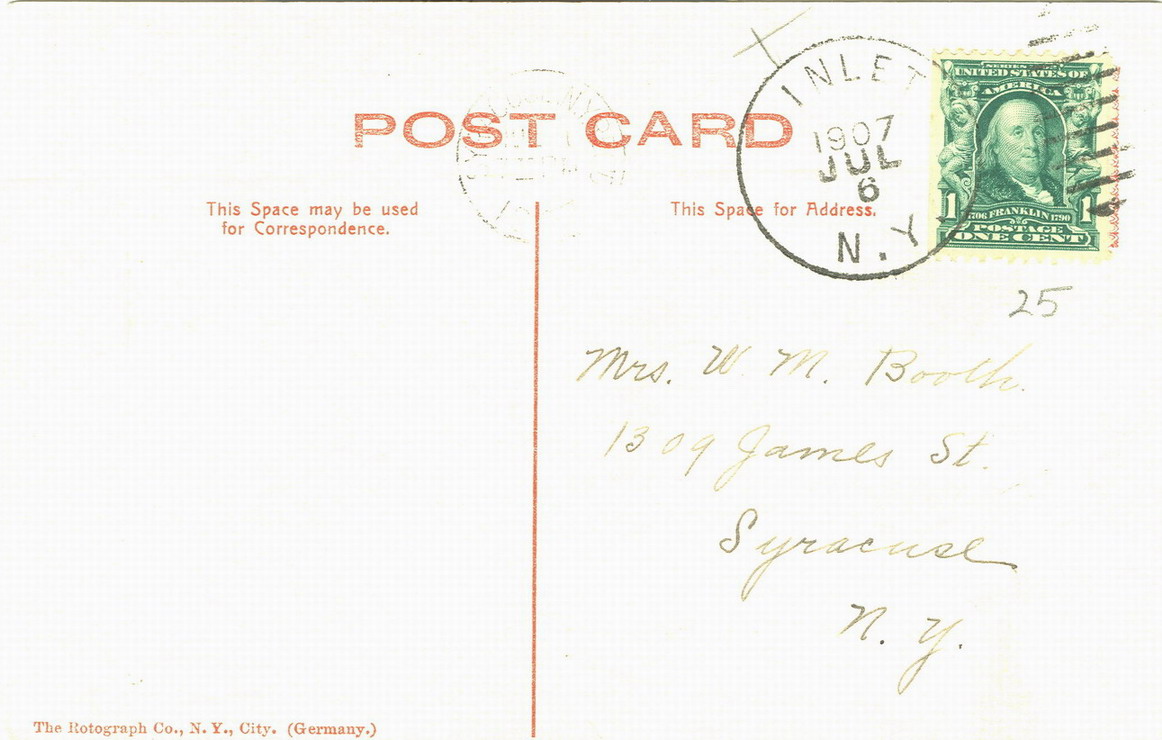 POST CARD
This Space may be used
for Correspondence.
This Space for Address.
INLET
1907
JUL
6
N.Y.
SERIES
UNITED STATES OF
AMERICA
1 1706 FRANKLIN 1790 1
POSTAGE
ONE CENT
25
Mrs. W. M. Booth.
1309 James St.
Syracuse
N. Y.
The Rotograph Co., N. Y., City. (Germany.)